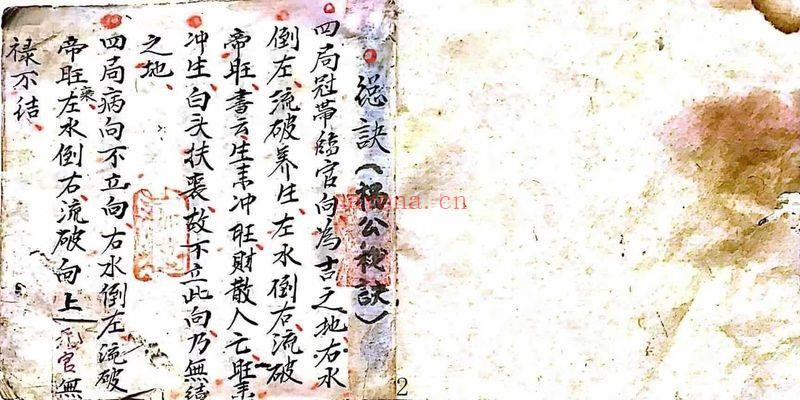 总訣（楊公秘訣）
四局冠带臨官向為吉之地右水
倒左流破养生左水倒右流破
帝旺書云生来冲旺财散人亡旺来
冲生白头扶丧故不立此向乃無结
之地
四局病向不立向右水倒左流破
帝旺左水倒右流破向上官無
禄不结
2